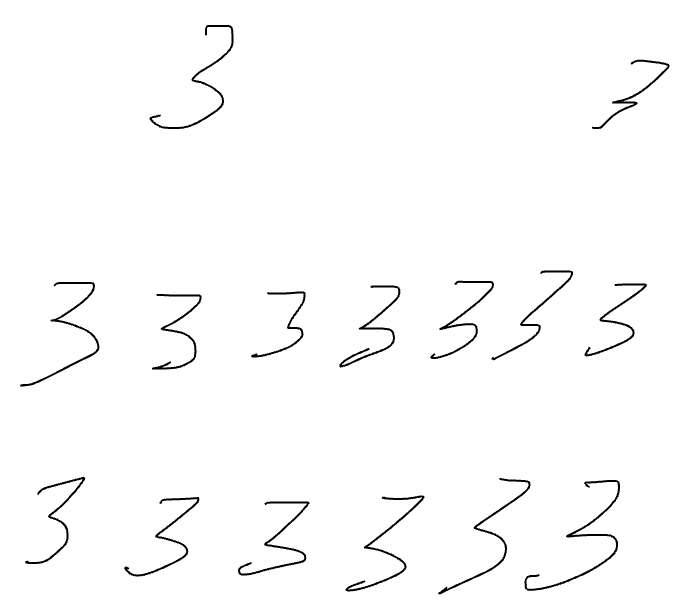 3 3
3 3 3 3 3 3 3
3 3 3 3 3 3